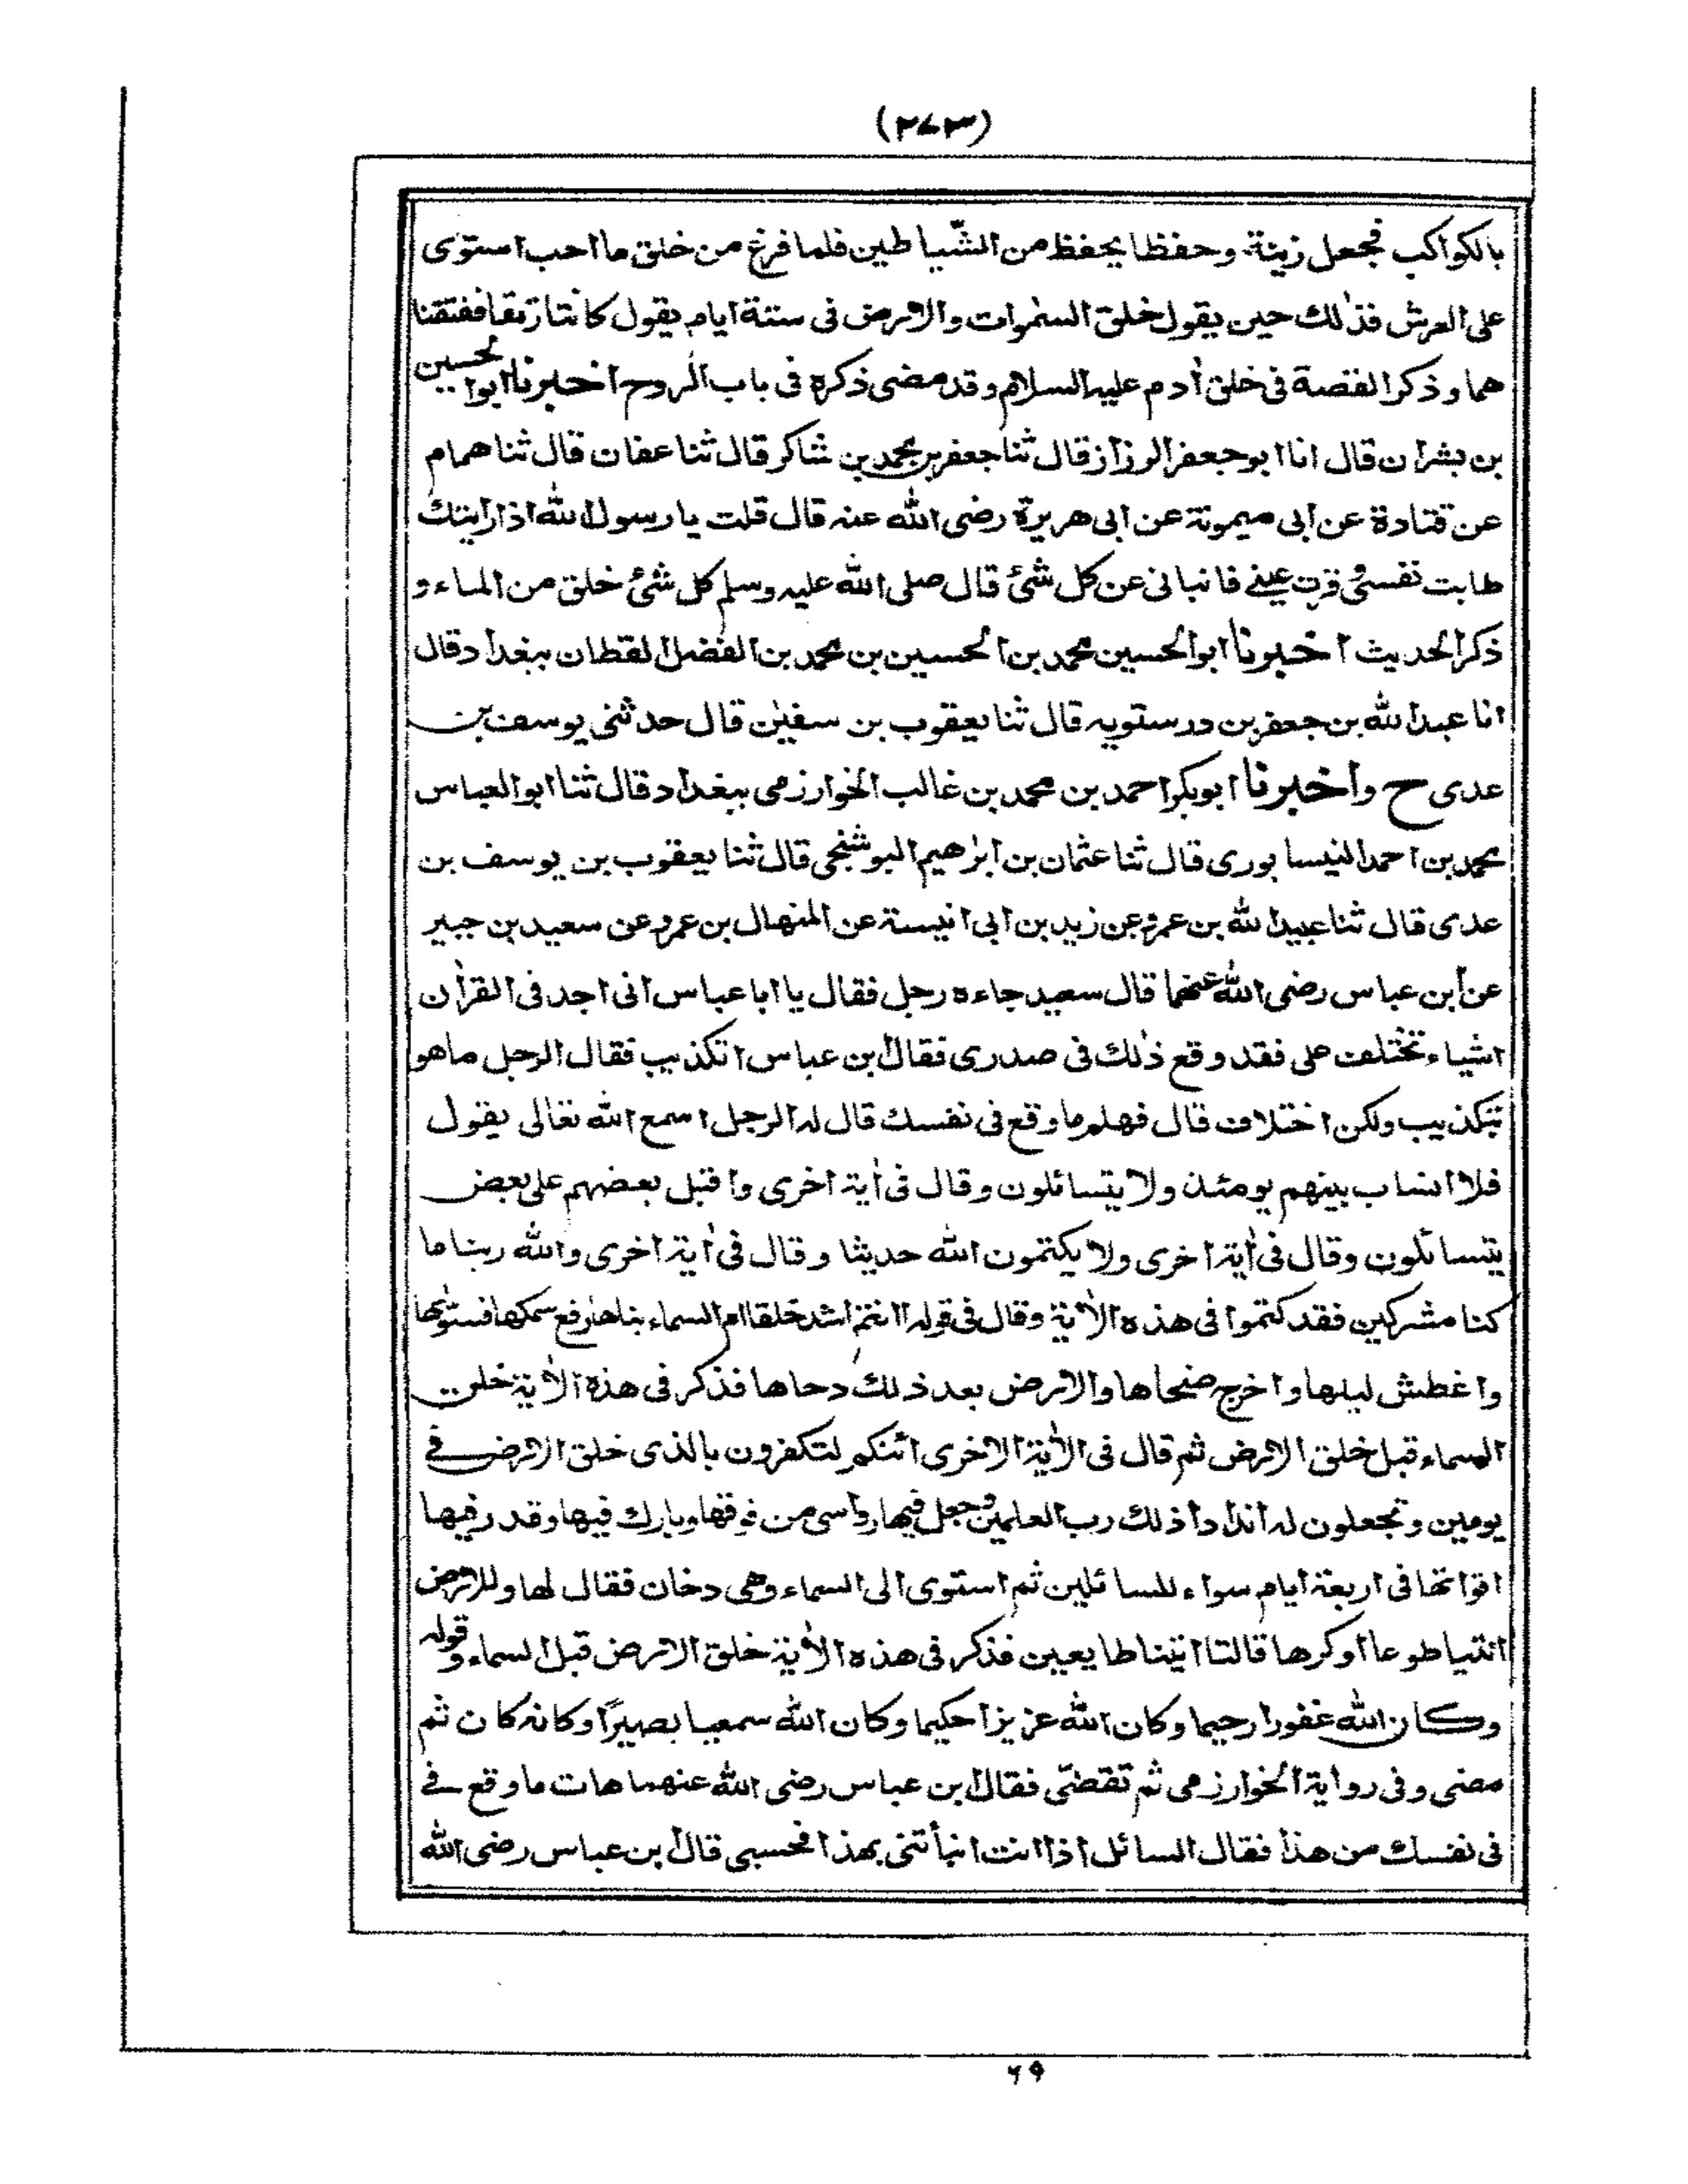 (٢٧٣)
بالكواكب فجعل زينة وحفظا يحفظ من الشّياطين فلما فرغ من خلق ما احب استوى
على العرش فذٰلك حين يقول خلق السمٰوات والارض فى ستة ايام يقول كانتا رتقا ففتقنا
هما وذكر القصة فى خلق اٰدم عليه السلام وقد مضى ذكره فى باب الروح اخبرنا ابوالحسين
بن بشران قال انا ابوجعفر الرزاز قال ثنا جعفر بن محمد بن شاكر قال ثنا عفان قال ثنا همام
عن قتادة عن ابى ميمونة عن ابى هريرة رضى الله عنه قال قلت يا رسول الله اذا رايتك
طابت نفسى وقرت عينے فانبانى عن كل شئ قال صلى الله عليه وسلم كل شئ خلق من الماء و
ذكر الحديث اخبرنا ابوالحسين محمد بن الحسين بن محمد بن الفضل القطان ببغداد قال
انا عبد الله بن جعفر بن درستويه قال ثنا يعقوب بن سفيٰن قال حدثنى يوسف بن
عدى ح واخبرنا ابوبكر احمد بن محمد بن غالب الخوارزمى ببغداد قال ثنا ابوالعباس
محمد بن احمد النيسابورى قال ثنا عثمان بن ابرٰهيم البوشنجى قال ثنا يعقوب بن يوسف بن
عدى قال ثنا عبيد الله بن عمرو عن زيد بن ابى انيسة عن المنهال بن عمرو عن سعيد بن جبير
عن ابن عباس رضى الله عنهما قال سعيد جاءه رجل فقال يا ابا عباس انى اجد فى القراٰن
اشياء تختلف على فقد وقع ذٰلك فى صدرى فقال ابن عباس اتكذيب فقال الرجل ماهو
بتكذيب ولكن اختلاف قال فهلم ما وقع فى نفسك قال له الرجل اسمع الله تعالى يقول
فلا انساب بينهم يومئذ ولا يتسائلون وقال فى اٰية اخرى واقبل بعضهم على بعض
يتسائلون وقال فى اٰية اخرى ولا يكتمون الله حديثا وقال فى اٰية اخرى والله ربنا ما
كنا مشركين فقد كتموا فى هذه الاٰية وقال فى قوله اانتم اشد خلقا ام السماء بناها رفع سمكها فسوٰىها
واغطش ليلها واخرج ضحاها والارض بعد ذلك دحاها فذكر فى هذه الاٰية خلق
السماء قبل خلق الارض ثم قال فى الاٰية الاخرى ائنكم لتكفرون بالذى خلق الارض فے
يومين وتجعلون له اندادا ذلك رب العلمين وجعل فيها رواسى من فوقها وبارك فيها وقدر فيها
اقواتها فى اربعة ايام سواء للسائلين ثم استوى الى السماء وهى دخان فقال لها وللارض
ائتيا طوعا اوكرها قالتا اتينا طايعين فذكر فى هذه الاٰية خلق الارض قبل السماء وقوله
وكان الله غفورا رحيما وكان الله عزيزا حكيما وكان الله سميعا بصيرًا وكانه كان ثم
مضى وفى رواية الخوارزمى ثم تقضّى فقال ابن عباس رضى الله عنهما هات ما وقع فے
فى نفسك من هذا فقال السائل اذا انت انبأتنى بهذا فحسبى قال ابن عباس رضى الله
٦٩